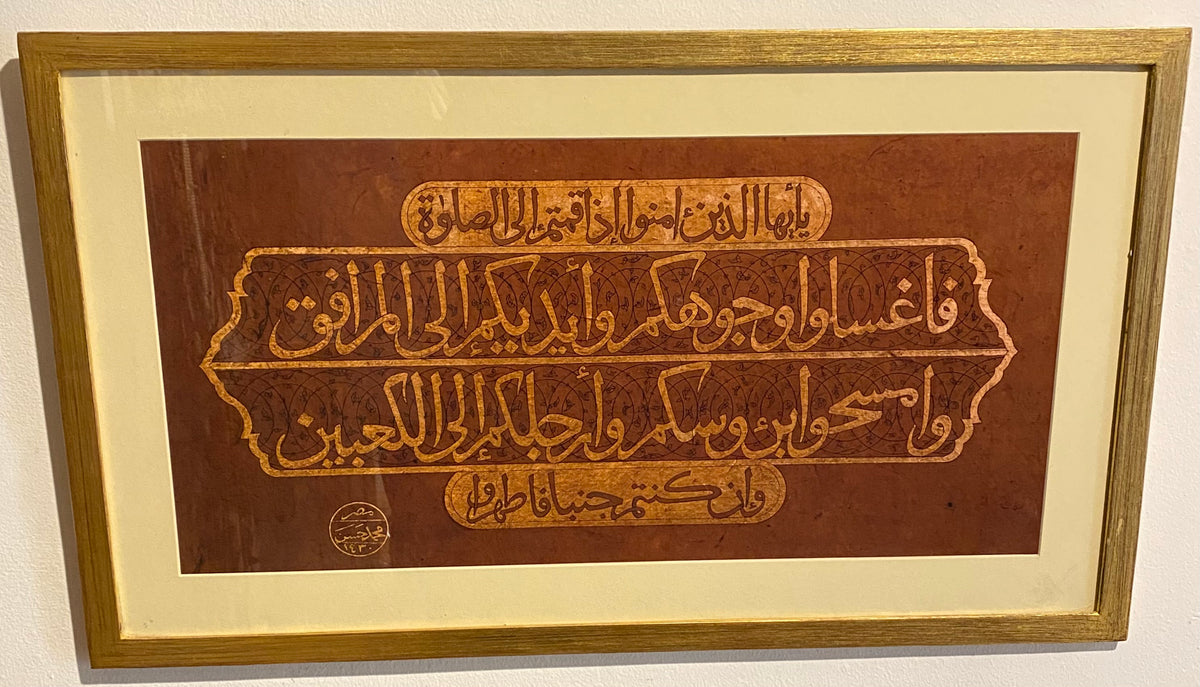 يأيها الذين ءامنوا إذا قمتم إلى الصلوٰة
فاغسلوا وجوهكم وأيديكم إلى المرافق
وامسحوا برءوسكم وأرجلكم إلى الكعبين
وإن كنتم جنبا فاطهروا
مصر
محمد حسن
١٤٣٠